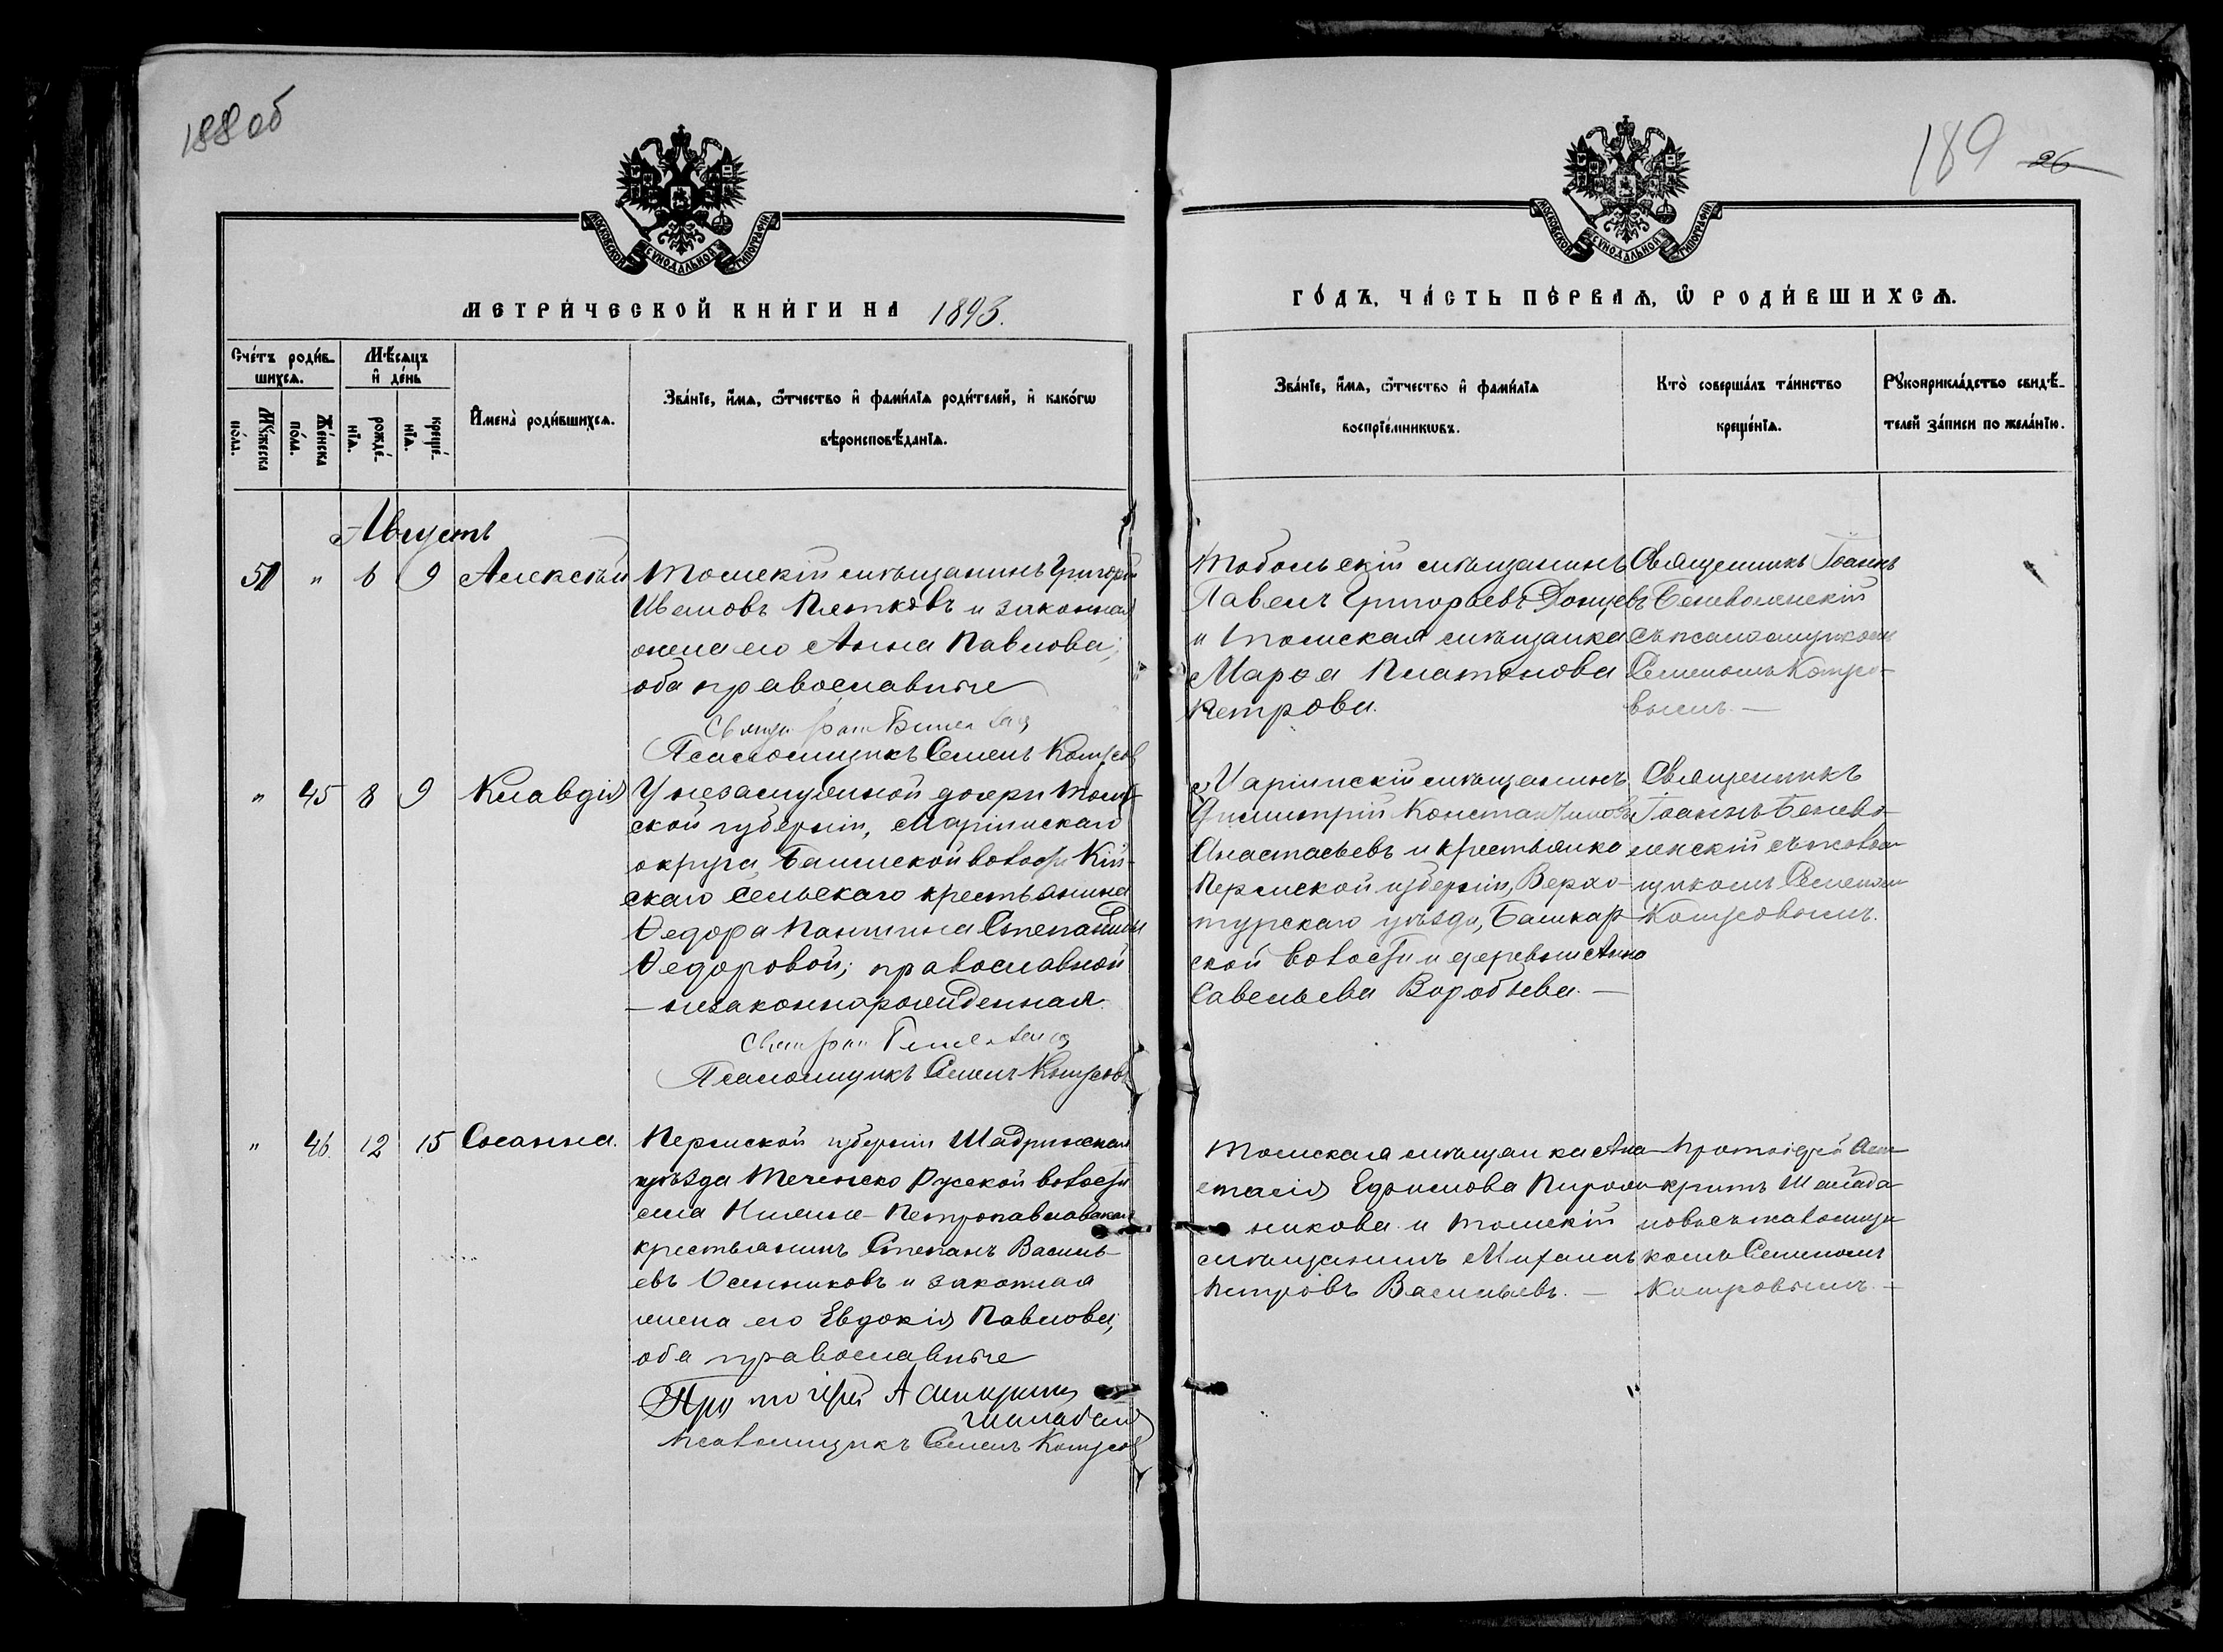 188 об
МОСКОВСКОЙ СѴНОДАЛЬНОЙ ТИПОГРАФІИ
МЕТРИ́ЧЕСКОЙ КНИ́ГИ НА 1893.
Сче́тъ роди́в-
шихсѧ.
Мꙋ́жеска
по́ла.
Же́нска
по́ла.
Мѣ́сѧцъ
и҆ де́нь
рожде́-
нїѧ.
креще́-
нїѧ.
И҆мена̀ роди́вшихсѧ.
Зва́нїе, и҆́мѧ, ѻ҆́тчество и҆ фами́лїѧ роди́телей, и҆ како́гѡ
вѣроисповѣ́данїѧ.
Августъ
51 " 6 9 Алексѣй Томскій мѣщанинъ Григорій
Ивановъ Плетковъ и законная
жена его Анна Павлова;
оба православные
Псаломщикъ Семенъ
" 45 8 9 Клавдія У незамужней дочери Том-
ской губерніи, Маріинскаго
округа, Баимской волости Кій-
скаго сельскаго крестьянина
Ѳедора Паншина Степаниды
Ѳедоровой; православной
– незаконнорожденная.
Псаломщикъ Семенъ
" 46. 12 15 Сосанна. Пермской губерніи Шадринскаго
уѣзда Теченско Русской волости
села Нижне-Петропавловскаго
крестьянинъ Степанъ Василь-
евъ Осинниковъ и законная
жена его Евдокія Павлова;
оба православные
Протоіерей
Псаломщикъ Семенъ
189 26
МОСКОВСКОЙ СѴНОДАЛЬНОЙ ТИПОГРАФІИ
ГО́ДЪ, ЧА́СТЬ ПЕ́РВАѦ, Ѽ РОДИ́ВШИХСѦ.
Зва́нїе, и҆́мѧ, ѻ҆́тчество и҆ фами́лїѧ
воспрїе́мникѡвъ.
Кто̀ соверша́лъ та́инство
креще́нїѧ.
Рꙋкоприкла́дство свидѣ́-
телей за́писи по жела́нїю.
Тобольскій мѣщанинъ
Павелъ Григорьевъ Донцевъ
и томская мѣщанка
Марѳа Платонова
Петрова.
Священникъ Іоаннъ
Беневоленскій
съ псаломщикомъ
Семеномъ
Маріинскій мѣщанинъ
Димитрій Константиновъ
Анастасьевъ и крестьянка
Пермской губерніи, Верхо-
турскаго уѣзда, Башкар-
ской волости и деревни Анна
Савельева Воробьева. –
Священникъ
Іоаннъ Бенево-
ленскій съ псалом-
щикомъ Семеномъ
Томская мѣщанка Ана-
стасія Ефимова Пирож-
никова и томскій
мѣщанинъ Михаилъ
Петровъ Васильевъ. –
Протоіерей Асин-
критъ
съ псаломщи-
комъ Семеномъ